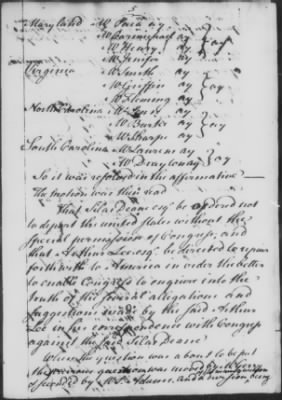 5
Maryland Mr Paca ay
Mr Carmichael ay } ay
Mr Henry ay
Mr Jenifer ay
Virginia Mr Smith ay
Mr Griffin ay } ay
Mr Fleming ay
North Carolina Mr Penn ay
Mr Burke ay } ay
Mr Sharpe ay
South Carolina Mr Laurens ay } ay
Mr Drayton ay
So it was resolved in the affirmative
The motion was then read
That Silas Deane esqr be ordered not
to depart the united states without the
special permission of Congress; and
that Arthur Lee esqr be directed to repair
forthwith to America in order the better
to enable Congress to enquire into the
truth of the several allegations and
suggestions made by the said Arthur
Lee in his correspondence with Congress
against the said Silas Deane
When the question was about to be put
the previous question was moved
seconded by Mr S. Adams and